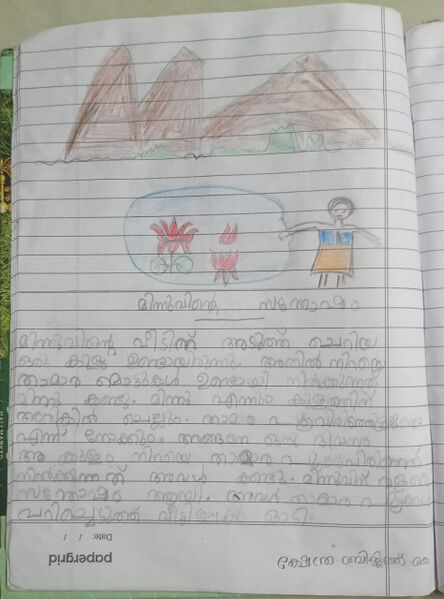 മിന്നുവിന്റെ സന്തോഷം
മിന്നുവിന്റെ വീടിന് അടുത്ത് ചെറിയ
ഒരു കുളം ഉണ്ടായിരുന്നു. അതിൽ നിറയെ
താമര മൊട്ടുകൾ ഉണ്ടായി നിൽക്കുന്നത്
മിന്നു കണ്ടു. മിന്നു എന്നും കുളത്തിന്
അരികിൽ ചെല്ലും. താമര
എന്ന് നോക്കും. അങ്ങനെ ഒരു ദിവസം
ആ കുളം നിറയെ താമര
നിൽക്കുന്നത് അവൾ കണ്ടു. മിന്നുവിന്
സന്തോഷം ആയി. അവൾ താമര
പറിച്ചെടുത്ത് വീട്ടിലേക്ക് ഓടി.
papergrid
Date: / /